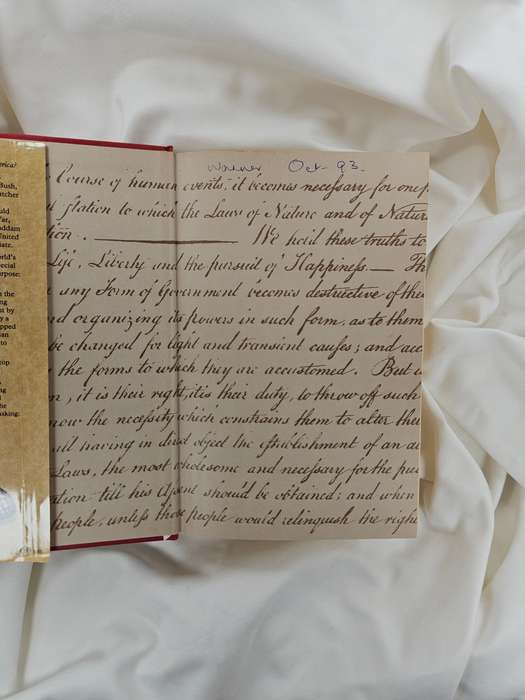 erica?
Bush,
atcher
uld
Far,
addam
United
iate.
orld's
ecial
urpose:
n the
ing
at by
y a
pped
an
to
top
ing
nd the
asking:
Oct 93.
Course of human events, it becomes necessary for one p
station to which the Laws of Nature and of Natur
tion. We hold these truths to
Life, Liberty and the pursuit of Happiness — Th
any Form of Government becomes destructive of thes
nd organizing its powers in such form, as to them
be changed for light and transient causes; and acc
the forms to which they are accustomed. But w
n, it is their right, it is their duty, to throw off such
now the necessity which constrains them to alter thei
all having in direct object the establishment of an a
Laws, the most wholesome and necessary for the pu
ation till his Assent should be obtained; and when
people, unless those people would relinquish the righ